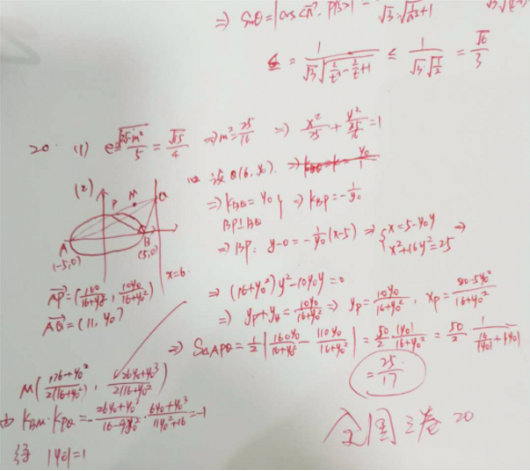 ⇒ Sinθ = |cos<n⃗, PB>| =
√3·√(λ²+1)
= 1/(√3·√(2/t² - 2/t + 1)) ≤ 1/(√3·√(1/2)) = √6/3
20. (1) e = √(25-m²)/5 = √15/4 ⇒ m² = 25/16 ⇒ x²/25 + y²/(25/16) = 1
(2)
P M Q
A B
(-5,0) (5,0)
x=6
设 Q(6, y₀).
⇒ k_BQ = y₀
BP⊥BQ } ⇒ k_BP = -1/y₀
⇒ BP: y-0 = -1/y₀(x-5) ⇒ { x=5-y₀y
x²+16y²=25 ⇒
⇒ (16+y₀²)y²-10y₀y=0
⇒ y_P+y_B = 10y₀/(16+y₀²) ⇒ y_P = 10y₀/(16+y₀²), x_P = (80-5y₀²)/(16+y₀²)
AP⃗ = (160/(16+y₀²), 10y₀/(16+y₀²))
AQ⃗ = (11, y₀)
⇒ S△APQ = 1/2|160y₀/(16+y₀²) - 110y₀/(16+y₀²)| = 50/2 · |y₀|/(16+y₀²) = 50/2 · 1/(16/|y₀|+|y₀|)
= 25/17
M((176+y₀²)/(2(16+y₀²)), (26y₀+y₀³)/(2(16+y₀²)))
由 k_BM·k_PQ = -(26y₀+y₀³)/(16-9y₀²)·(6y₀+y₀³)/(11y₀²+16) = -1
得 |y₀|=1
全国三卷 20